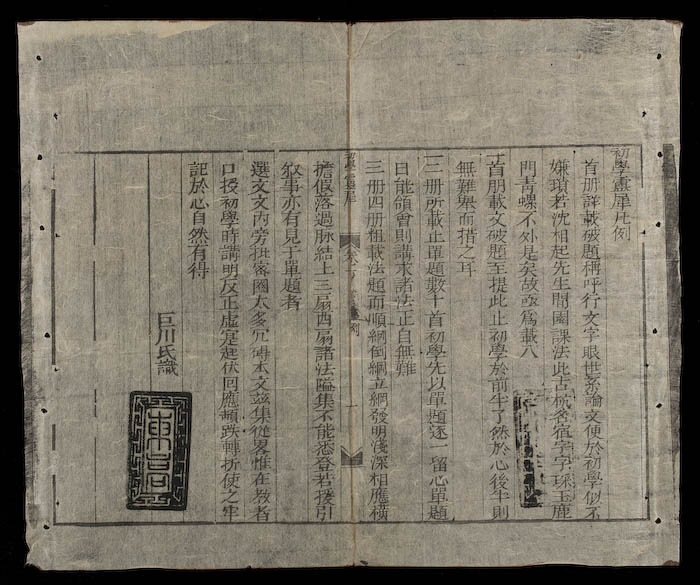 初學靈犀凡例
首册詳載破題稱呼行文字眼世系論文便於初學似不
嫌瑣若沈相起先生閒園課法此古
名宿字字琢玉鹿
門青螺不外是矣故
爲載入
首册載文破題至提比止初學於前半了然於心後半則
無難舉而措之耳
二册所載止單題數十首初學先以單題逐一留心單題
日能領會則講末諸法正自無難
三册四册粗載法題而順綱倒綱立綱發明淺深相應橫
擔假落過脉結上三扇四扇諸法隘集不能悉登若援引
叙事亦有見于單題者
選文文內旁批密圈太多冗碍本文玆集從畧惟在敎者
口授初學時講明反正虛寔起伏回應頓跌轉折使之牢
記於心自然有得
巨川氏識
初學靈犀
凡例
一